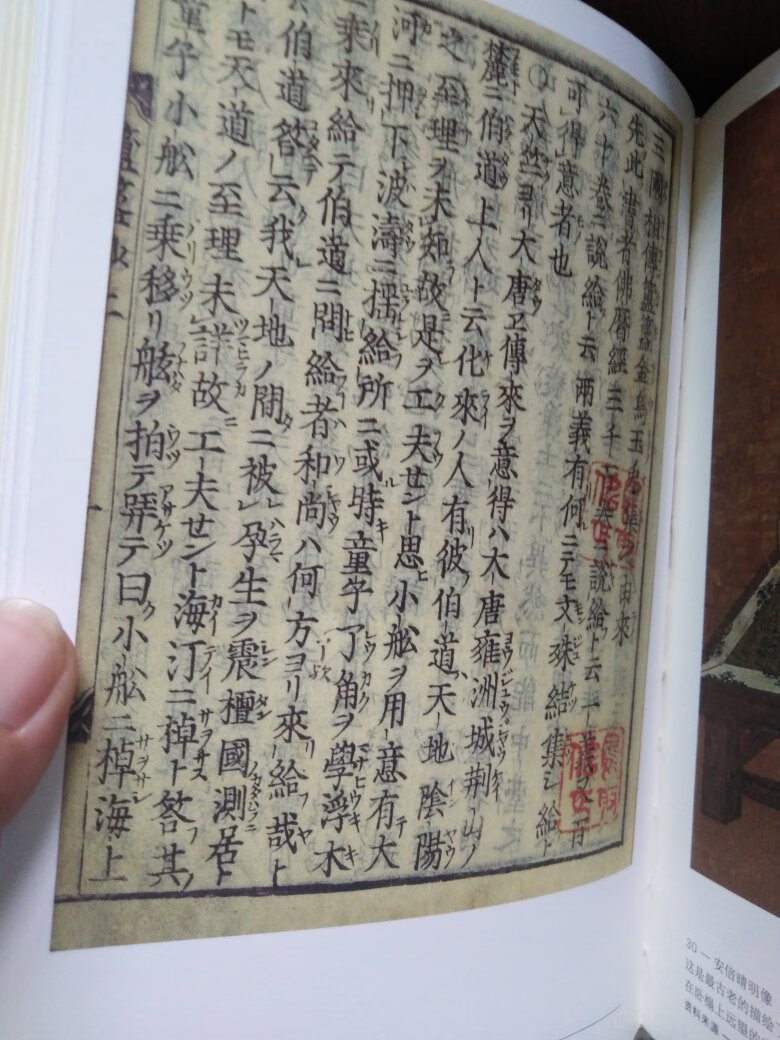 三國相傳簠簋金烏玉由來
先此書者佛曆經三千卷ニ說給ト云一義百
六十卷ニ說給ト云兩義有何ニテモ文殊結集シ給ト
可得意者也
〇天竺ヨリ大唐ヱ傳來ヲ意得ハ大唐雍洲城荆山ノ
麓ニ伯道上人ト云化來ノ人有彼伯道天地陰陽
之至理ヲ未知故是ヲ工夫セント思小舩ヲ用意有大
河ニ押下波濤ニ揺給所ニ或時童子了角ヲ學浮木
乗來給テ伯道ニ問給者和尚ハ何方ヨリ來給哉ト
云伯道答云我天地ノ間ニ被孕生ヲ震檀國測居ト
トモ天道ノ至理未詳故工夫セント海汀ニ棹ト答其
童子小舩ニ乗移リ舷ヲ拍テ哢テ曰小舩ニ棹海上
一
30 — 安倍晴明像
这是最古老的描绘
在卧榻上远望的
资料来源 —